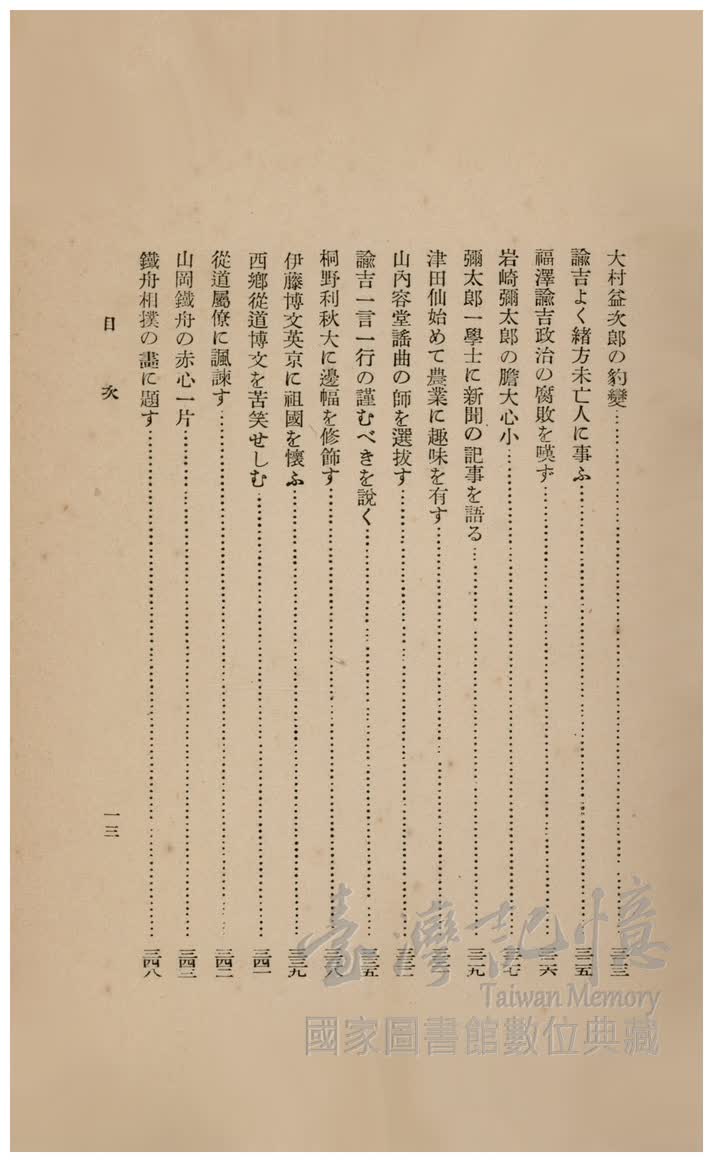 大村益次郎の豹變……三二三
諭吉よく緖方未亡人に事ふ……三二五
福澤諭吉政治の腐敗を嘆ず……三二六
岩崎彌太郎の膽大心小……三二七
彌太郎一學士に新聞の記事を語る……三二九
津田仙始めて農業に趣味を有す……
山內容堂謠曲の師を選拔す……
諭吉一言一行の謹むべきを說く……三三五
桐野利秋大に邊幅を修飾す……三三八
伊藤博文英京に祖國を懷ふ……三三九
西鄕從道博文を苦笑せしむ……三四一
從道屬僚に諷諫す……三四二
山岡鐵舟の赤心一片……三四三
鐵舟相撲の畫に題す……三四八
目次
一三
臺灣記憶
Taiwan Memory
國家圖書館數位典藏